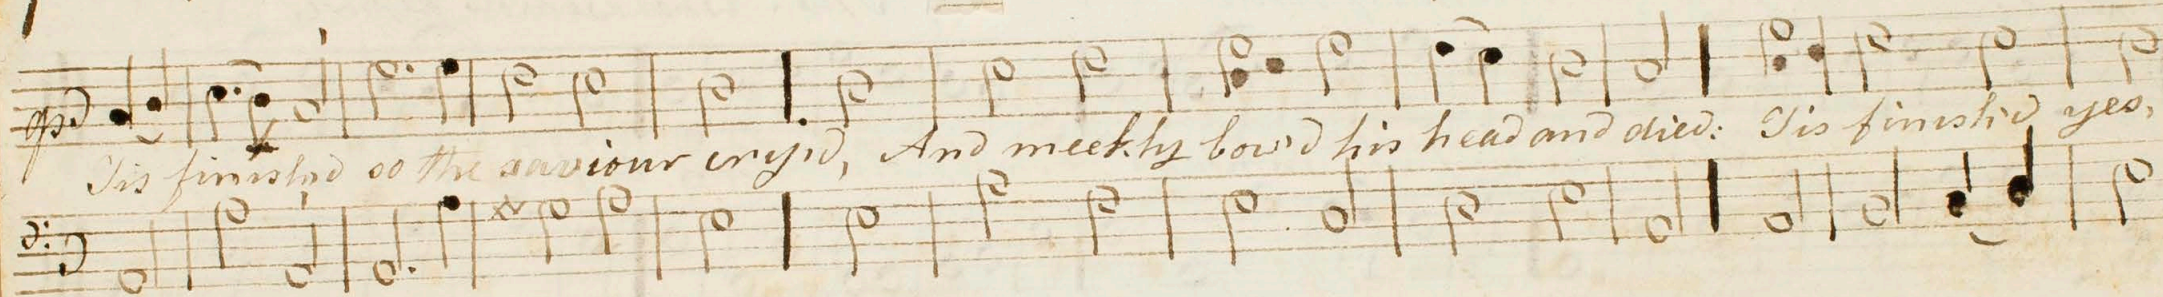 Tis finish'd so the saviour cry'd, And meekly bow'd his head and died: Tis finish'd yes,